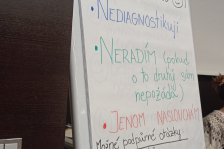 • NEDIAGNOSTIKUJI
• NERADÍM (pokud
o to druhý sám
nepožádá)
• JENOM NASLOUCHÁM
Možné podpůrné otázky